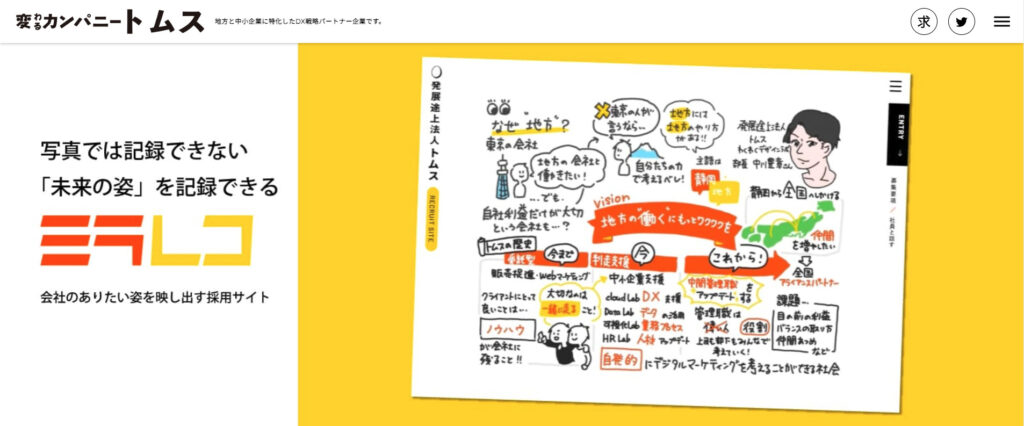 変わるカンパニートムス
地方と中小企業に特化したDX戦略パートナー企業です。
求
写真では記録できない
「未来の姿」を記録できる
ミラレコ
会社のありたい姿を映し出す採用サイト
発展途上法人トムス
RECRUIT SITE
ENTRY
募集要項 / 社員と話す
なぜ"地方"?
東京の会社
東京の人が
言うなら…
地方には
地方のやり方
がある!!
発展途上法人
トムス
わくわくデザインラボ
地方の会社と
働きたい!
自分たちの力
で考えるべし!
主語は
静岡
地方
静岡から全国へしかける
…でも、
自社利益だけが大切
という会社も…?
vision
地方の"働く"にもっとワクワクを
仲間
を増やしたい
全国
アライアンスパートナー
トムスの歴史
今まで
伴走支援
今
これから!
販売促進・Webマーケティング
中小企業支援
中間管理職を
アップデートする
クライアントにとって
良いことは…
大切なのは
一緒に走ること!
cloud Lab DX 支援
Data Lab データの活用
可視化Lab 業務プロセス
HR Lab 人材 アップデート
管理職は
偉い人 役割
上司も部下もみんなで
考えていく!
課題…
目の前の利益
バランスの取り方
仲間あつめ
など
ノウハウ
が会社に
残ること!!
自発的にデジタルマーケティングを考えることができる社会